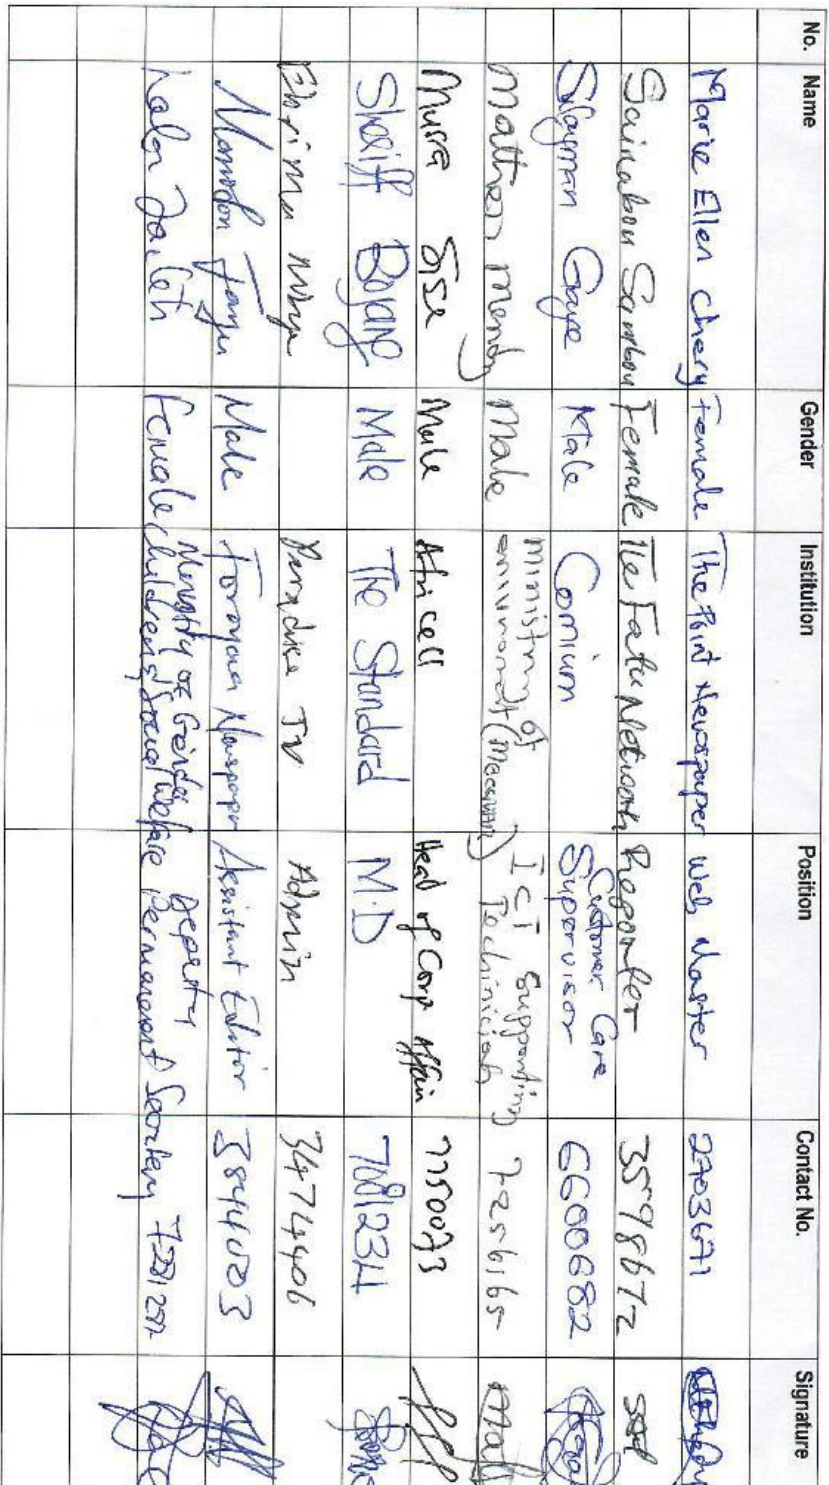 No. Name Gender Institution Position Contact No. Signature
Marie Ellen Chery Female The Point Newspaper Web Master 2703671
Sainabou Sambou Female The Fatu Network Reporter 3598672
Silayman Gaye Male Comium Customer Care Supervisor 6600682
Matthew Mendy Male Ministry of environment ICT Supporting Techinician 7256165
Musa Sise Male Africell Head of Corp Affair 7750073
Sheriff Bojang Male The Standard M.D
Ebrima Paradise TV Admin 3474406
Male Foroyaa Newspaper Assistant Editor 3844003
Female Ministry of Gender Children & Social Welfare Deputy Permanent Secretary